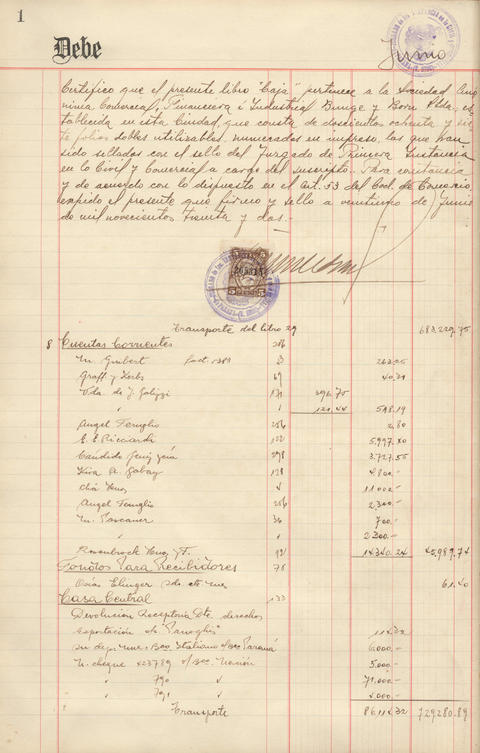 1
Debe
Junio
Certifico que el presente libro "Caja" pertenece a la Sociedad Anó
nima Comercial, Financiera é Industrial Bunge y Born Ltda, es
tablecida en esta Ciudad, que consta de doscientos ochenta y sie
te folios dobles utilizables, numerados en impreso, los que han
sido sellados con el sello del Juzgado de Primera Instancia
en lo Civil y Comercial a cargo del suscripto. Para constancia
y de acuerdo con lo dispuesto en el Art. 53 del Cod. de Comercio,
expido el presente que firmo y sello a veinticinco de Junio
de mil novecientos treinta y dos.-
5 5
Transporte del libro 29 683.229.75
8 Cuentas Corrientes 286
M. Guibert fact. 1289
Graff y Kerbs 69 40,39
Vda. de J. Galizzi 171 396.75
" 121.44 518.19
Angel Feruglio 286 2,80
E. E. Ricciardi 5.997.40
Candido 298 3.727.55
Kiva A. Gabay 128 4.800.-
11.000.-
Angel Feruglio 286 2.300.-
M. Pascaner 36 700.-
" 2.300.-
Rosenbrock Hnos. 14.340.24 45.989.74
Fondos Para Recibidores 78
Elunger 61.40
Casa Central 133
Devolucion Receptoria Dto. derechos
exportación
Su dep. Bco. Italiano s/Bco Paraná 6.000.-
N. cheque 423789 s/Bco. Nación 5.000.-
" 790 " 71.000.-
" 791 " 4.000.-
Transporte 86.114.32 729280.89